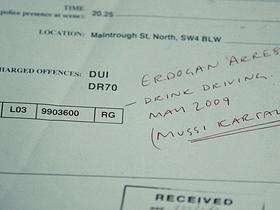 TIME
police presence at scene: 20.25
LOCATION: Maintrough St, North, SW4 BLW
CHARGED OFFENCES: DUI
DR70
L03 9903600 RG
ERDOGAN 'ARRES
DRINK DRIVING
MAY 2009
(MUSSI KARTAL
RECEIVED